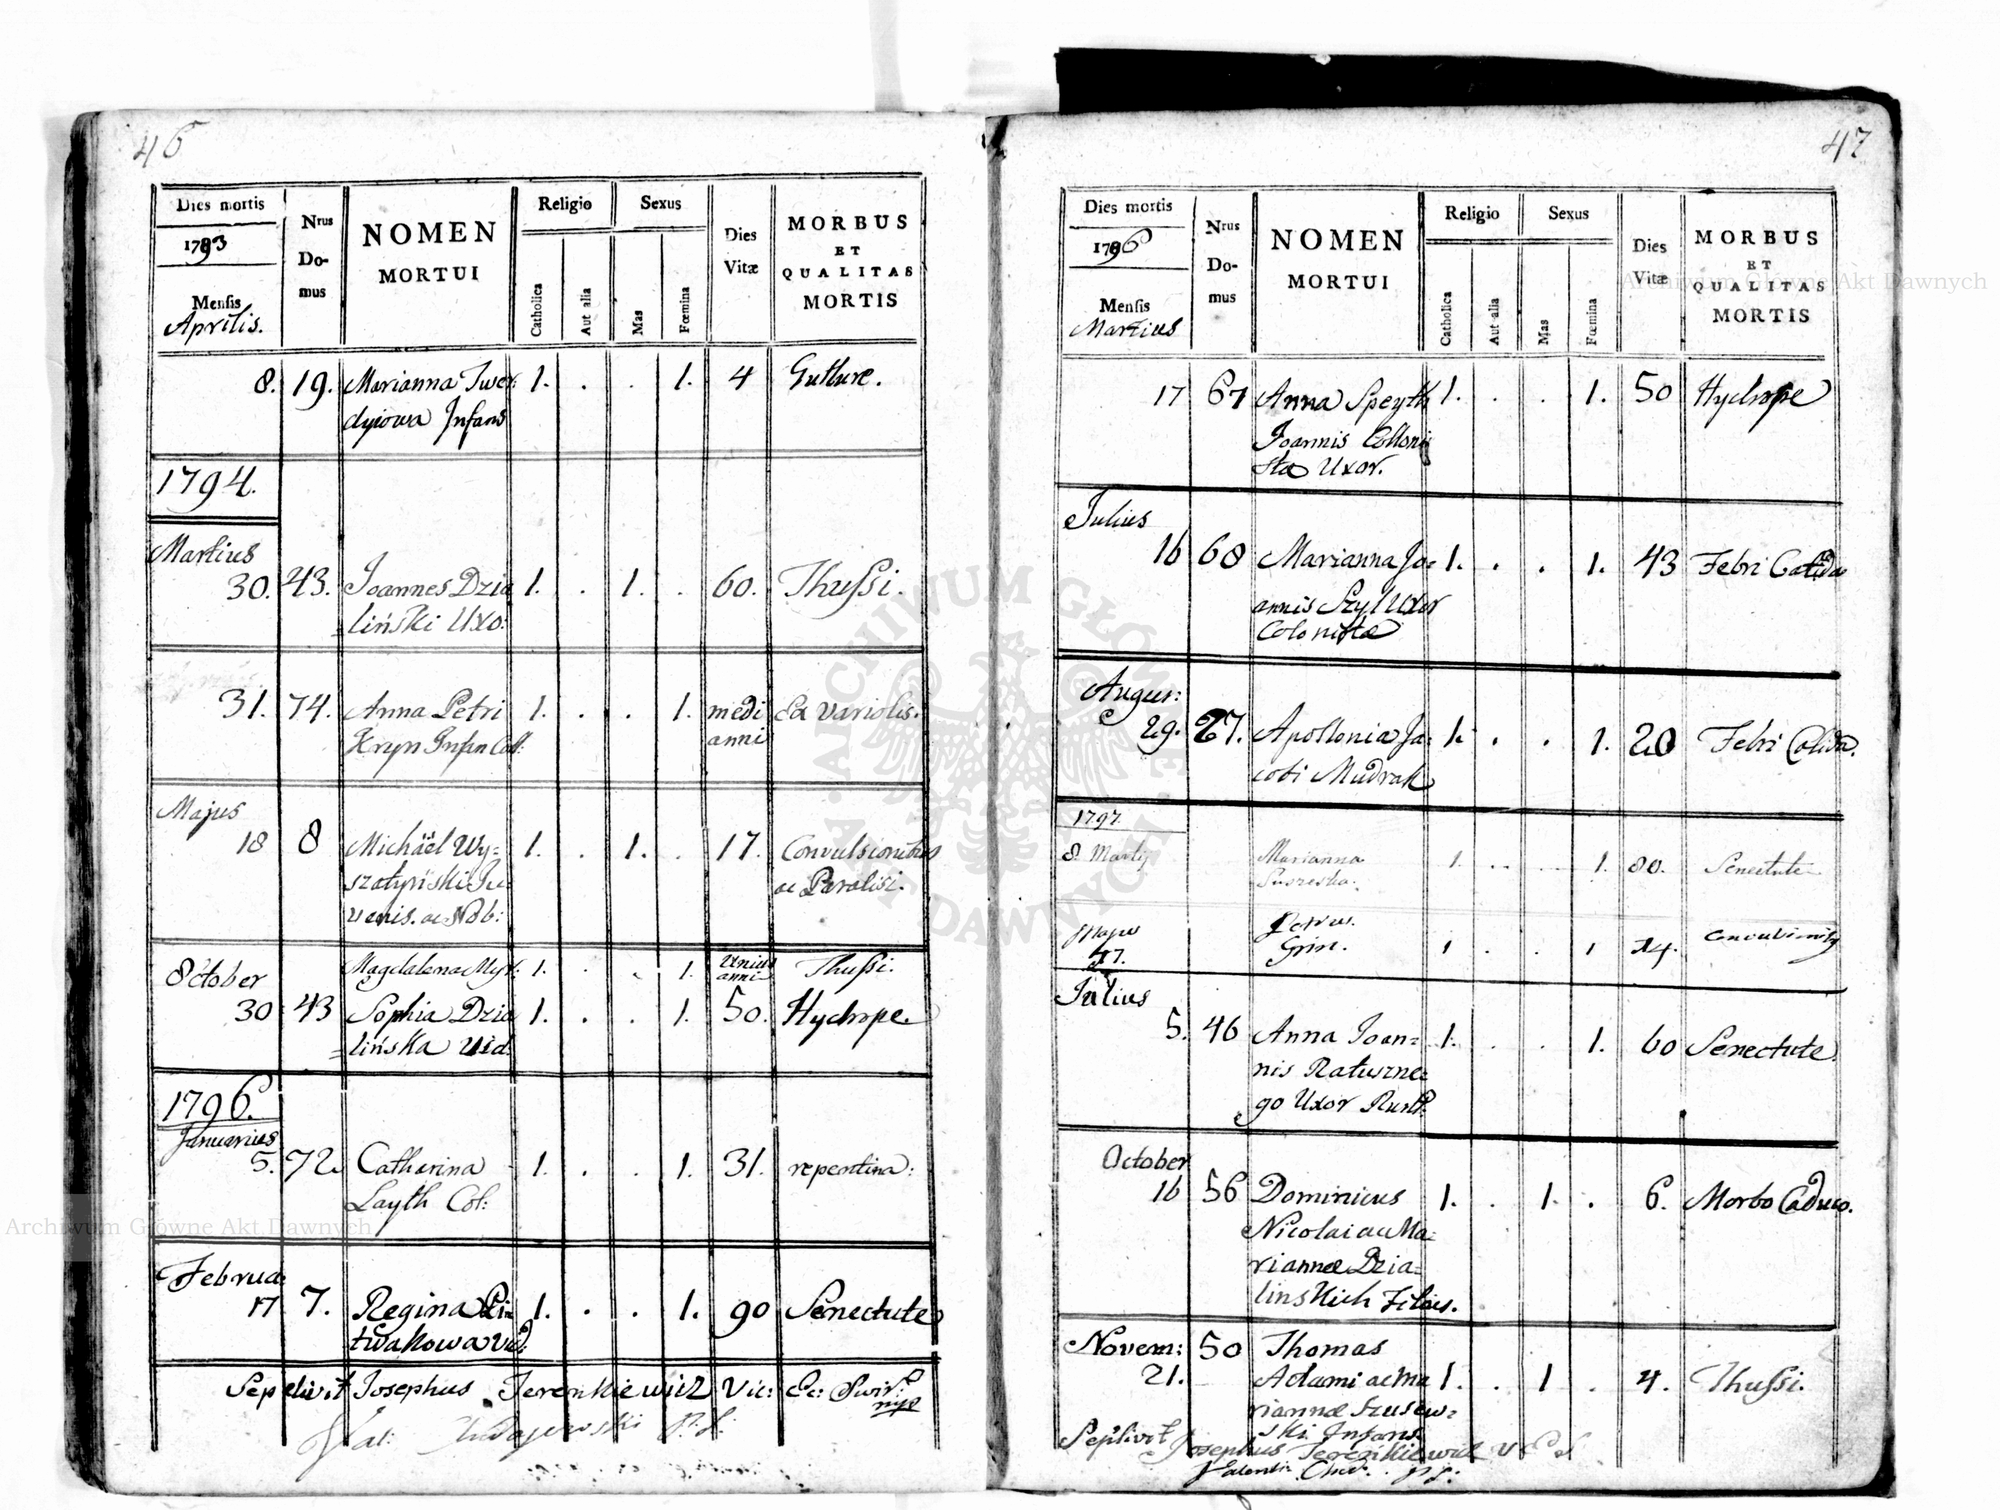 46
Dies mortis
1793
Mensis
Aprilis.
Nrus
Do-
mus
NOMEN
MORTUI
Religio
Catholica
Aut alia
Sexus
Mas
Fœmina
Dies
Vitæ
MORBUS
ET
QUALITAS
MORTIS
8. 19. Marianna Twer: 1. . . 1. 4 Gutture.
dyiowa Infans
1794.
Martius
30. 43. Joannes Dzia 1. . 1. . 60. Thussi.
=liński Uxo:
31. 74. Anna Petri 1. . . 1. medi Ex variolis.
Kryn Infan Coll: anni
Majus
18 8 Michäël Wy= 1. . 1. . 17. Convulsionibus
szatyński Ju= ac Paralisi.
venis. ac Nob:
Magdalena Myr: 1. . . 1. Unius Thussi.
October anni
30 43 Sophia Dzia 1. . . 1. 50. Hydrope.
=lińska Vid:
1796.
Januarius
5. 72. Catharina 1. . . 1. 31. repentina:
Layth Col:
Februa:
17 7. Regina Li= 1. . . 1. 90 Senectute
twakowa Vid:
Sepelivit Josephus Jerenkiewicz Vic: Ec: Swir:
nye
Val: P. L.
47
Dies mortis
1796
Mensis
Martius
Nrus
Do-
mus
NOMEN
MORTUI
Religio
Catholica
Aut alia
Sexus
Mas
Fœmina
Dies
Vitæ
MORBUS
ET
QUALITAS
MORTIS
17 67 Anna Speyth 1. . . 1. 50 Hydrope
Joannis Colloni
sta Uxor.
Julius
16 68 Marianna Jo= 1. . . 1. 43 Febri Calida
annis Szyl Uxor
Colonistæ
Augus:
29. 27. Apollonia Ja: 1. . . 1. 20 Febri Calida.
cobi Mudrak
1797.
8. Martij Marianna 1. . . 1. 80. Senectute
Majus Petrus
17. Grin. 1 . . 1 14.
Julius
5. 46 Anna Joan= 1. . . 1. 60 Senectute.
nis Ratuszne=
go Uxor Rust.
October
16 56 Dominicus 1. . 1. . 6. Morbo Caduco.
Nicolai ac Ma=
riannæ Dzia=
linskich Filius.
Novem: 50 Thomas
21. Adami ac Ma 1. . 1 . 4. Thussi.
riannæ Szusew=
ski Infans
Seplivit Josephus Jerenkiewicz V E S
Archiwum Główne Akt Dawnych
Archiwum Główne Akt Dawnych
· ARCHIWUM GŁÓWNE · AKT DAWNYCH